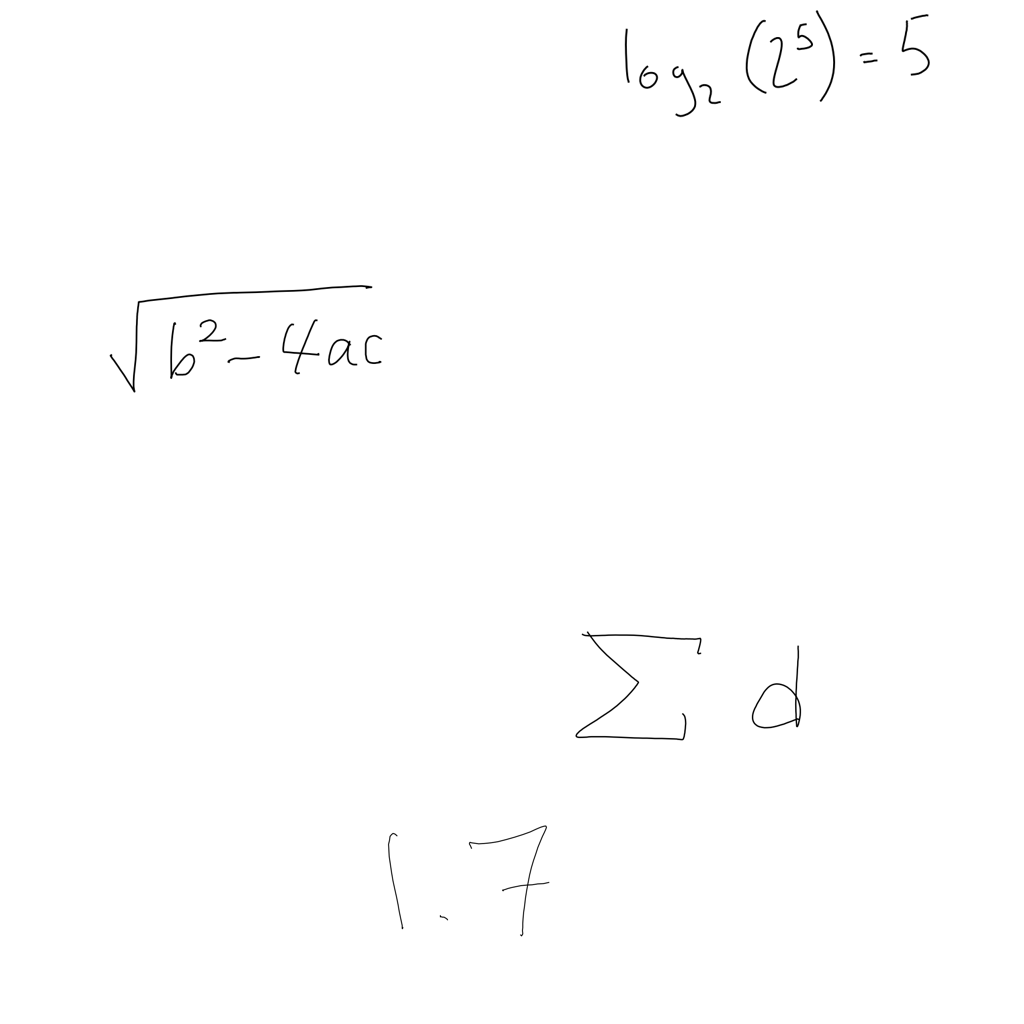 log₂(2⁵) = 5
√(b² - 4ac)
∑ d
1.7